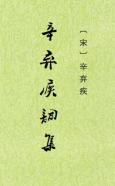 辛弃疾词集
[宋]辛弃疾